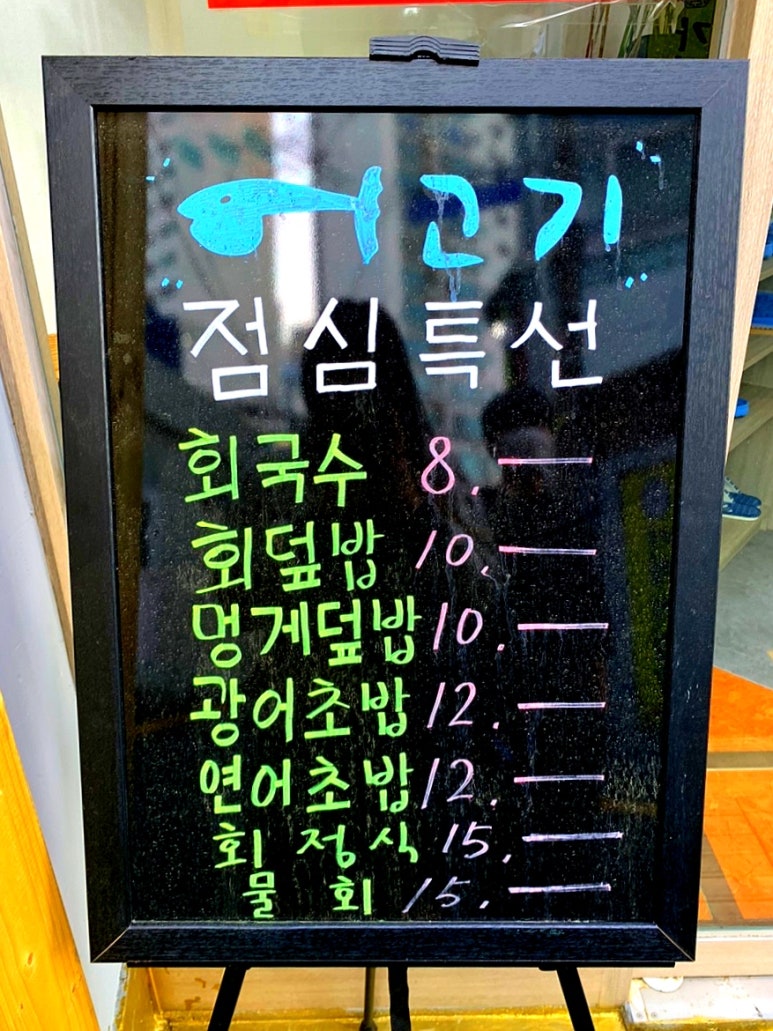 어고기
점심특선
회국수 8.—
회덮밥 10.—
멍게덮밥 10.—
광어초밥 12.—
연어초밥 12.—
회정식 15.—
물회 15.—